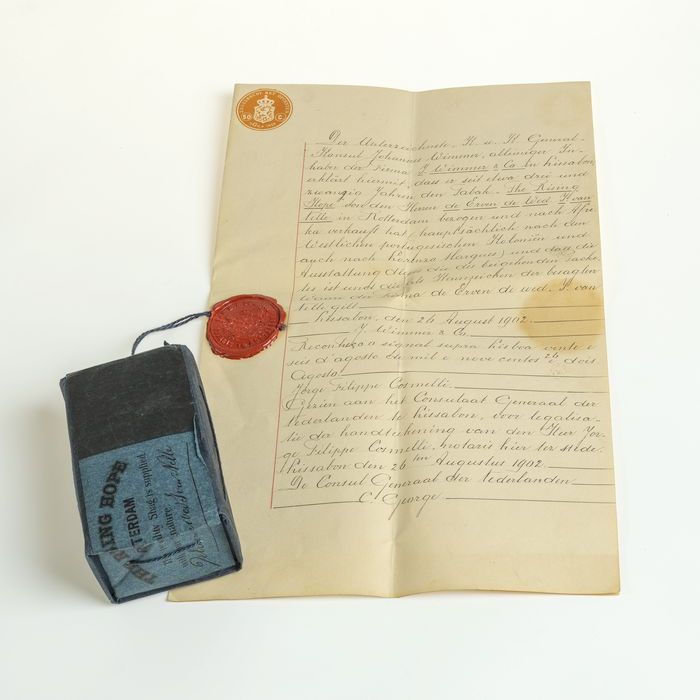 50 C
Der Unterzeichnete K. u. K. General-
Konsul Johannes Wimmer, alleiniger In-
haber der Firma J. Wimmer & Co in Lissabon,
erklärt hiermit, dass er seit etwa drei und
zwanzig Jahren den Tabak „The Rising
Hope" von den Herren de Erven de Wed. J. van
Nelle in Rotterdam bezogen und nach Afri-
ka verkauft hat, hauptsächlich nach den
Westlichen portugesischen Kolonien und
auch nach Lorenzo Marques, und dass die
Ausstattung dieses die des beigehenden Packe-
tes ist und die als Kennzeichen der besagten
Waare der Firma de Erven de Wed. J. van
Nelle gilt.
Lissabon, den 26 August 1902.
J. Wimmer & Co
Reconheço o signal supra Lisboa vinte e
seis d'agosto de mil e nove centos e dois
26
Agosto
Jorge Filippe Cosmelli
Gezien aan het Consulaat Generaal der
Nederlanden te Lissabon, voor legalisa-
tie der handteekening van den Heer Jor-
ge Filippe Cosmelli, notaris hier ter stede.
Lissabon den 26sten Augustus 1902.
De Consul Generaal der Nederlanden
C. George
RISING HOPE
ROTTERDAM
Shag is supplied